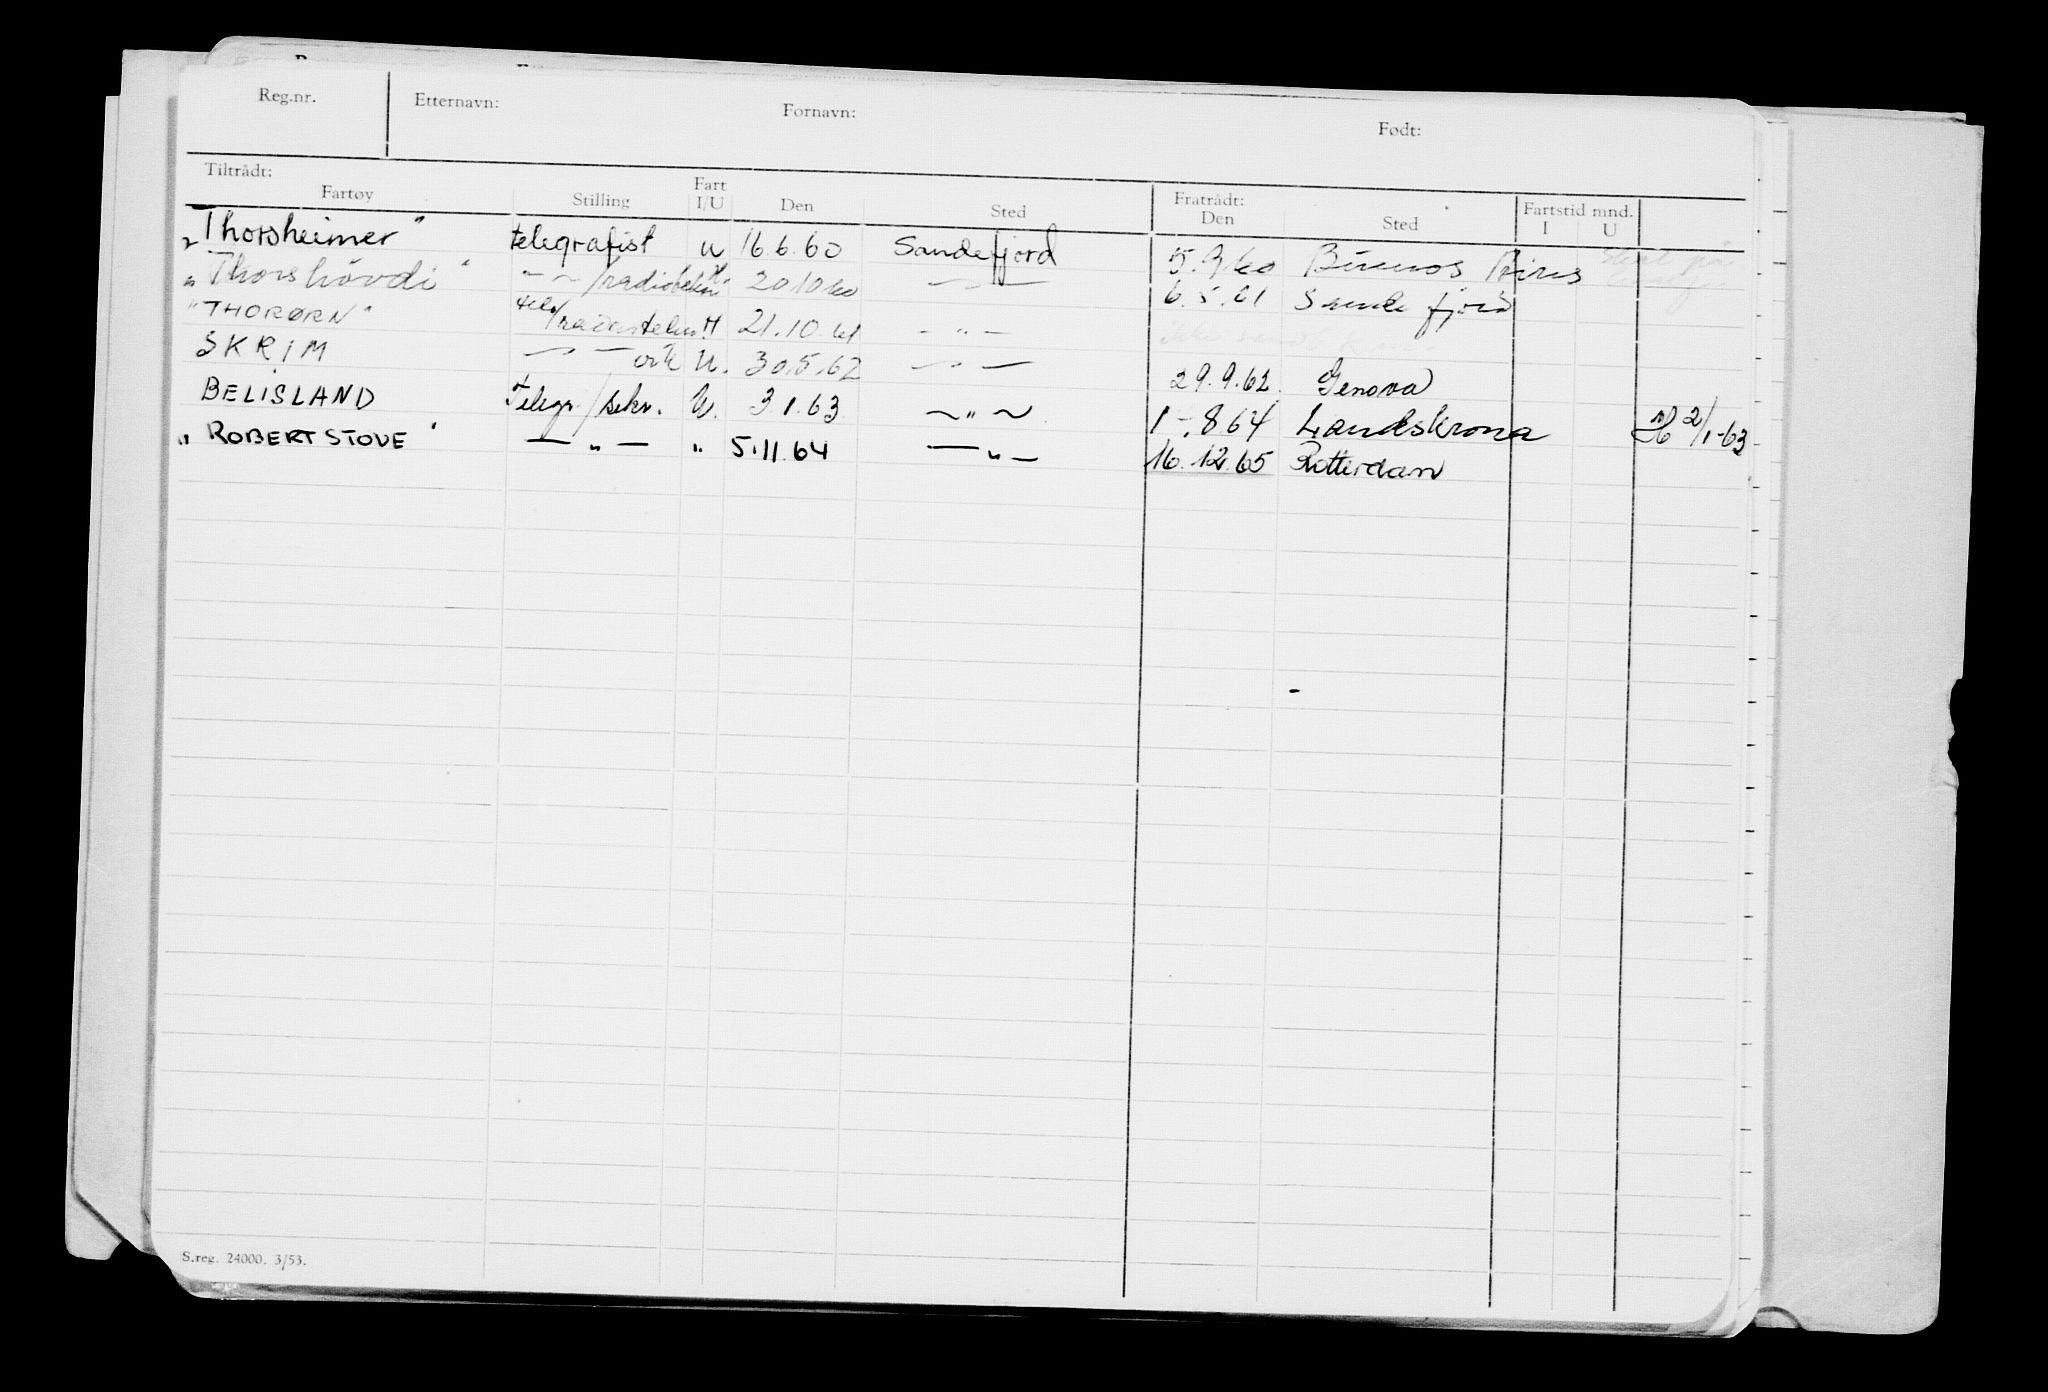 Reg.nr. Etternavn: Fornavn: Født:
Tiltrådt: Fratrådt:
Fartøy Stilling Fart I/U Den Sted Den Sted Fartstid mnd. I U
"Thorsheimer" telegrafist u 16.6.60 Sandefjord 5.9.60 Buenos Aires
"Thorshövdi" — " — /radiotekn 20.10.60 — " — 6.5.61 Sandefjord
"THORØRN" tel/radiotekn. 21.10.61 — " —
SKRIM — " — U. 30.5.62 — " — 29.9.62. Genova
BELISLAND Telegr./sekr. U. 3.1.63 — " — 1-.8 64 Landskrona 2/1-63
"ROBERT STOVE" — " — " 5.11.64 — " — 16.12.65 Rotterdam
S.reg. 24000. 3/53.